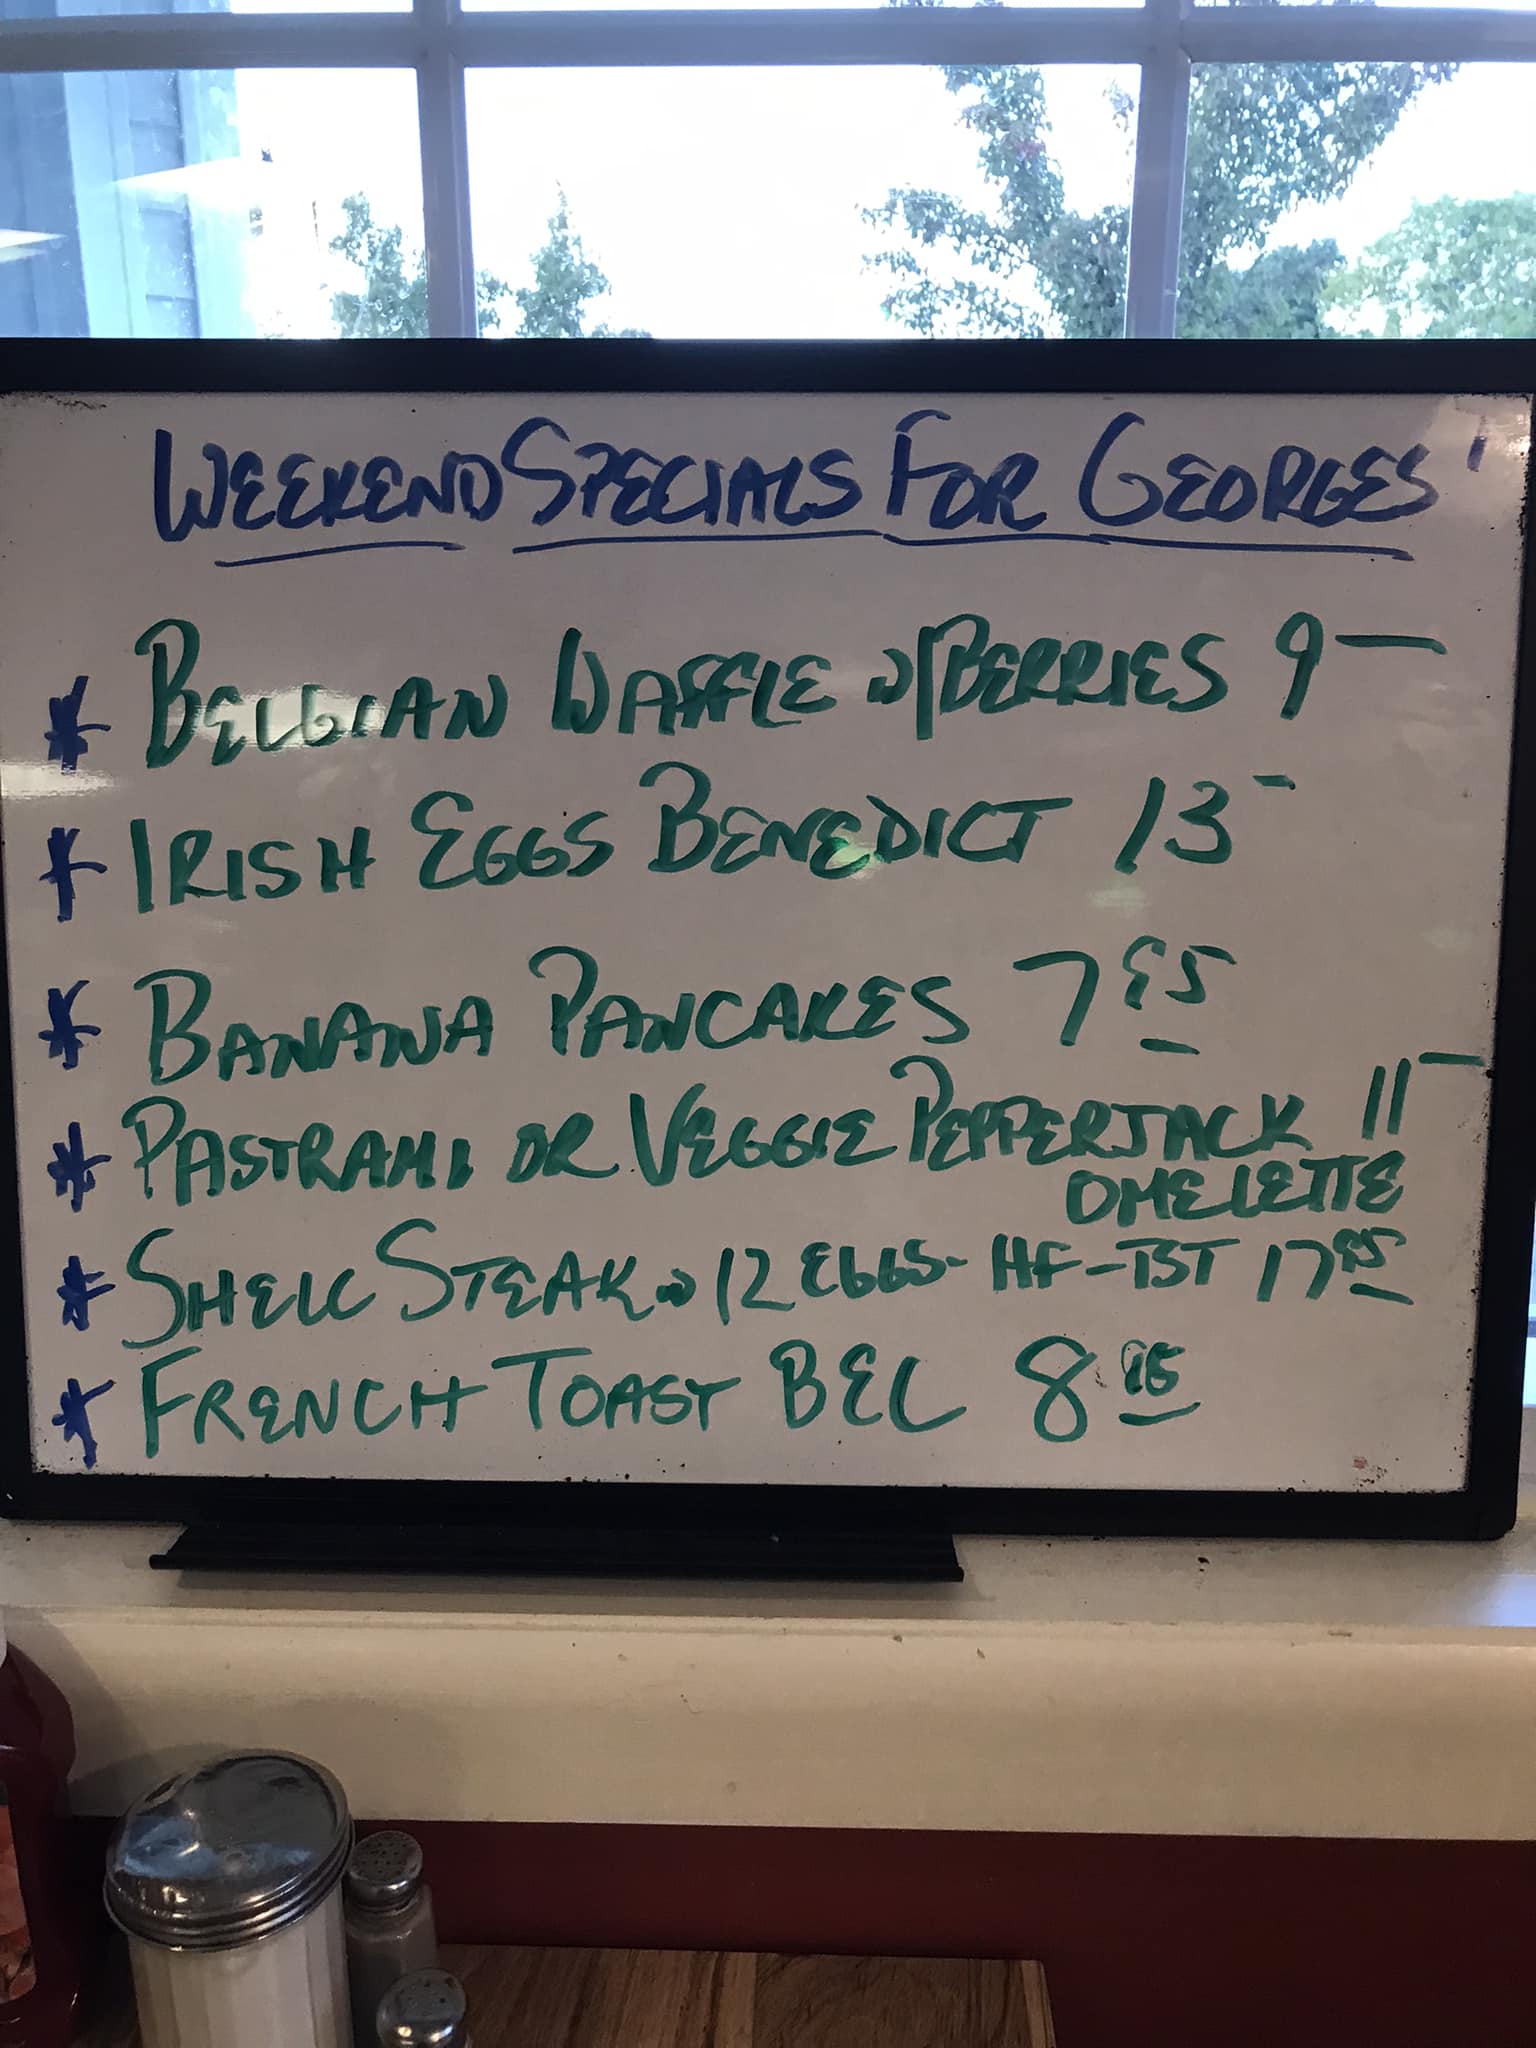 WEEKEND SPECIALS FOR GEORGES'
* BELGIAN WAFFLE w/BERRIES 9—
* IRISH EGGS BENEDICT 13-
* BANANA PANCAKES 7 95
* PASTRAMI OR VEGGIE PEPPERJACK 11—
OMELETTE
* SHELL STEAK w/2 EGGS-HF-TST 17 95
* FRENCH TOAST BEL 8